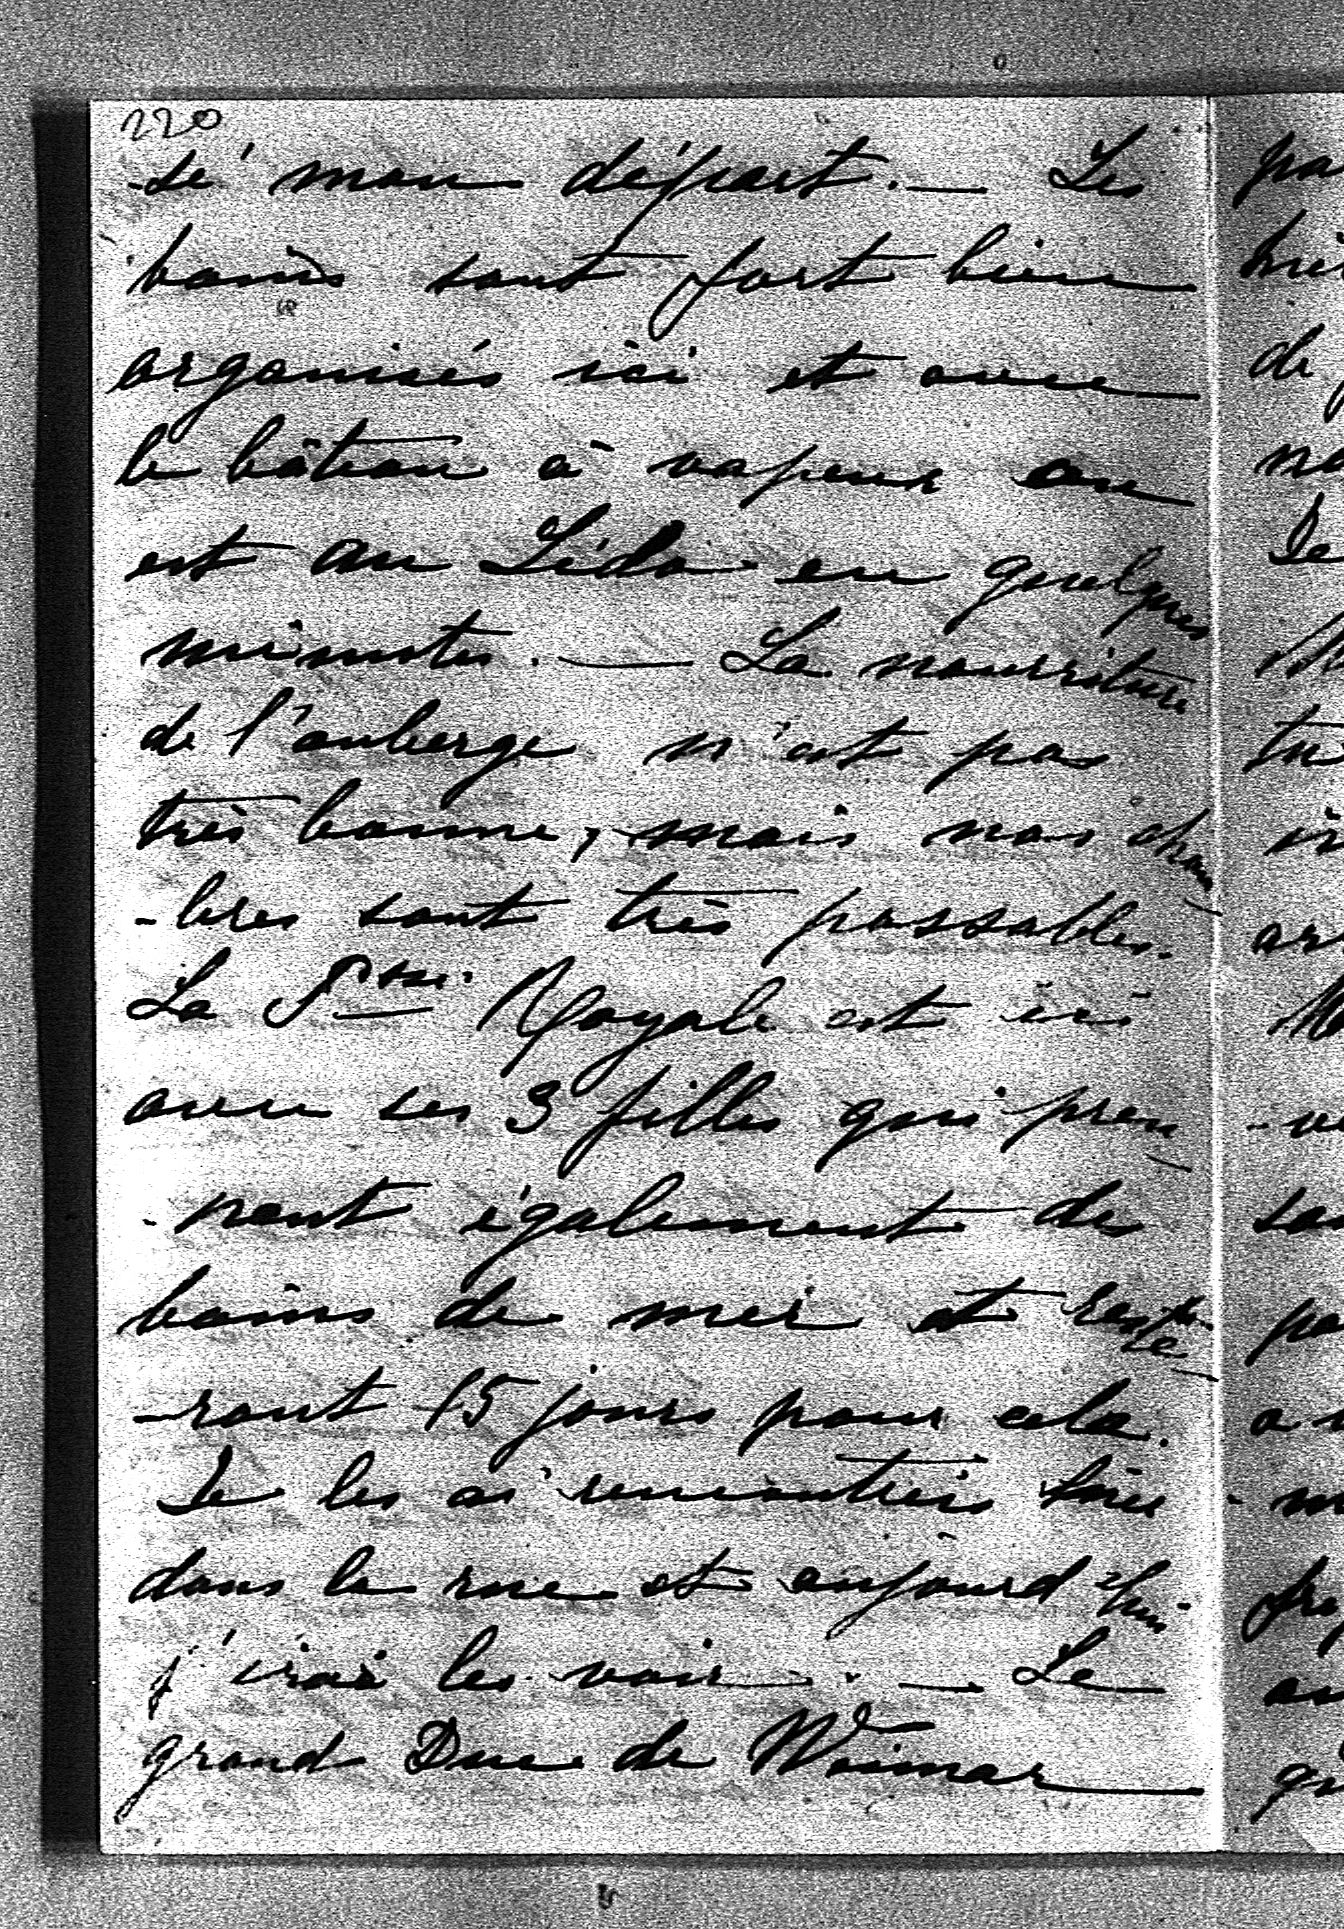 220
-sé mon départ. — Les
bains sont fort bien
organisés ici et avec
le bâteau à vapeur on
est au Lido en quelques
minutes. — La nourriture
de l'auberge n'est pas
très bonne, mais nos cham
-bres sont très passables.
La Psse Royale est ici
avec ses 3 filles qui pren
-nent également des
bains de mer et reste
-ront 15 jours pour cela.
Je les ai rencontrées hier
dans la rue et aujourd'hui
j'irai les voir. — Le
grand Duc de Weimar